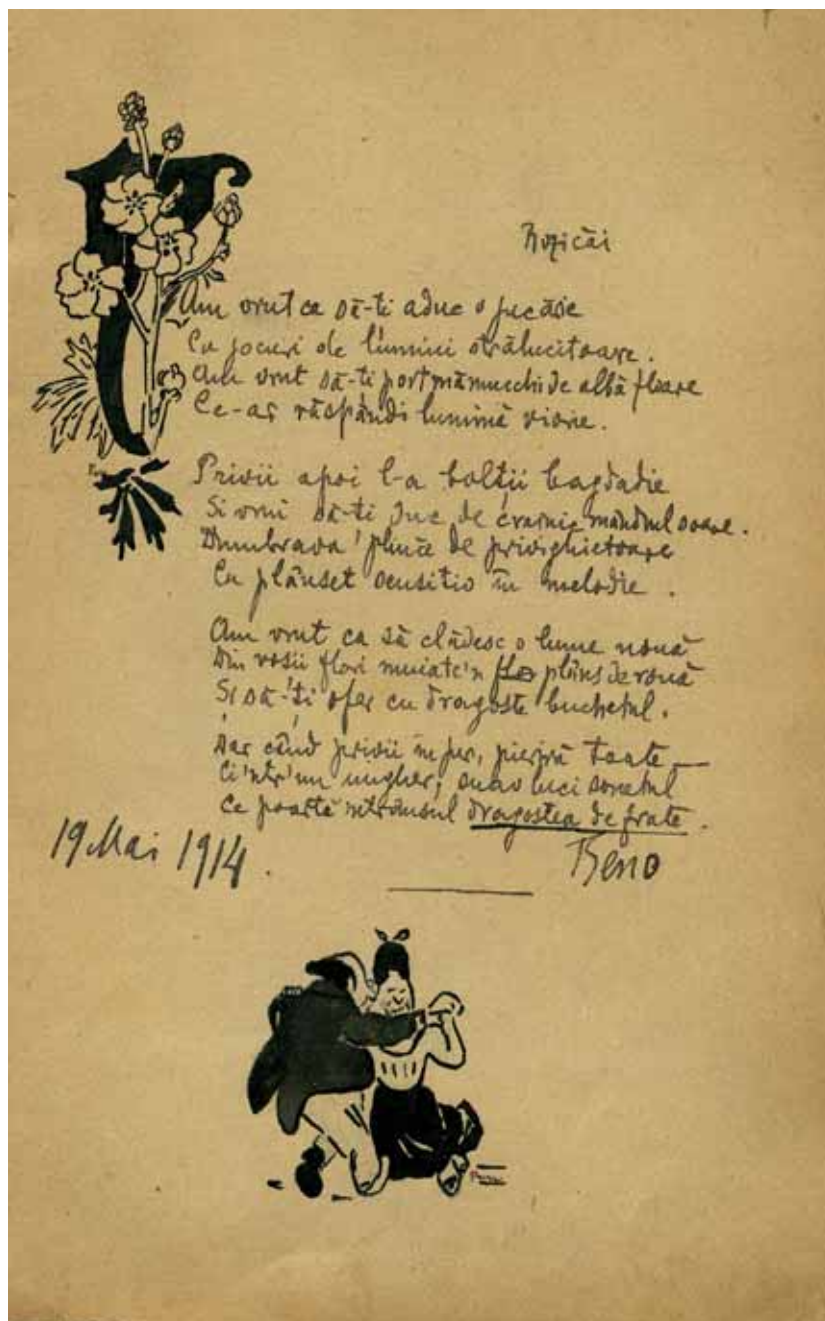 Rozicăi
Am vrut ca să-ti aduc o jucărie
Cu jocuri de lumini strălucitoare.
Am vrut să-ti port mămucchi de albă floare
Ce-ar răspândi lumină viorie.
Privii apoi l-a bolții bagdadie
Si vrui să-ti duc de crainic mândrul soare.
Dumbrava plină de privighietoare
Cu plânset in melodie.
Am vrut ca să clădesc o lume nouă
Din roșii flori muiate'n plâns de rouă
Si să-ți ofer cu dragoste buchetul.
Dar când privii in jur, pieriră toate
Ci 'ntr'un ungher, suav luci sonetul
Ce poartă intrânsul dragostea de frate.
19 Mai 1914.
Beno